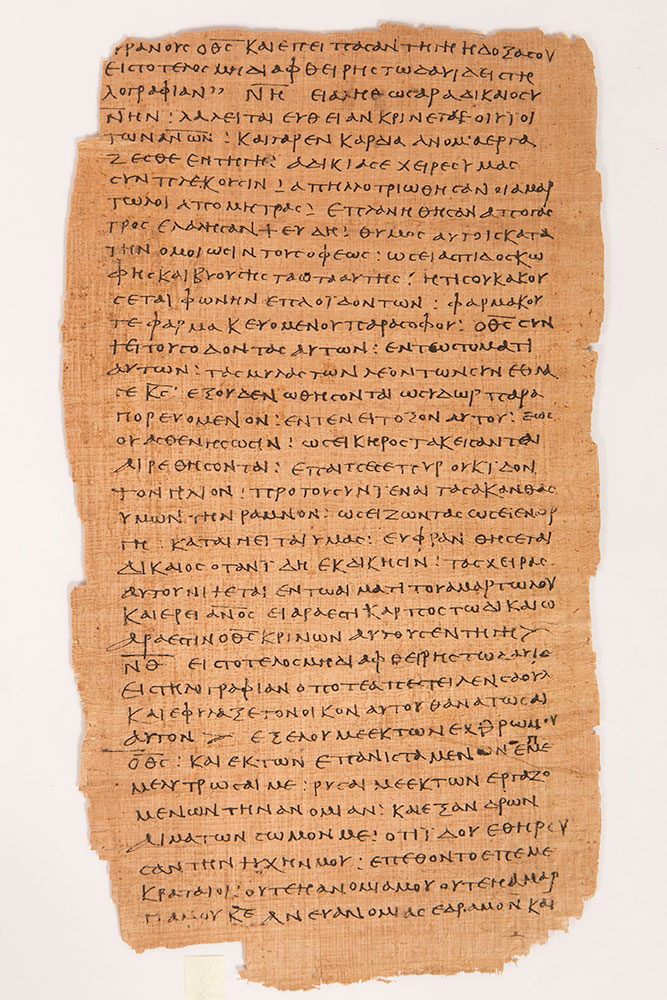 ΥΡΑΝΟΥϹ Ο̅Θ̅Ϲ̅ ΚΑΙ ΕΠΕΙ ΠΑϹΑΝ ΤΗΝ ΓΗ Η ΔΟΞΑ ϹΟΥ
ΕΙϹ ΤΟ ΤΕΛΟϹ ΜΗ ΔΙΑΦΘΕΙΡΗϹ ΤΩ ΔΑΥΙΔ ΕΙϹ ΤΗ
ΛΟΓΡΑΦΙΑΝ ” Ν̅Η̅ ΕΙ ΑΛΗΘΩϹ ΑΡΑ ΔΙΚΑΙΟϹΥ
ΝΗΝ : ΛΑΛΕΙΤΑΙ ΕΥΘΕΙΑΝ ΚΡΙΝΕΤΑΙ ΟΙ ΥΙΟΙ
ΤΩΝ Α̅Ν̅Ω̅Ν̅ : ΚΑΙ ΓΑΡ ΕΝ ΚΑΡΔΙΑ ΑΝΟΜΙΑ ΕΡΓΑ
ΖΕϹΘΕ ΕΝ ΤΗ ΓΗ : ΑΔΙΚΙΑϹ Ε ΧΕΙΡΕϹ ΥΜΑϹ
ϹΥΝΠΛΕΚΟΥϹΙΝ : ΑΠΗΛΛΟΤΡΙΩΘΗϹΑΝ ΟΙ ΑΜΑΡ
ΤΩΛΟΙ ΑΠΟ ΜΗΤΡΑϹ : ΕΠΛΑΝΗΘΗϹΑΝ ΑΠΟ ΓΑϹ
ΤΡΟϹ ΕΛΑΛΗϹΑΝ ΨΕΥΔΗ : ΘΥΜΟϹ ΑΥΤΟΙϹ ΚΑΤΑ
ΤΗΝ ΟΜΟΙΩϹΙΝ ΤΟΥϹ ΟΦΕΩϹ : ΩϹΕΙ ΑϹΠΙΔΟϹ ΚΩ
ΦΗϹ ΚΑΙ ΒΥΟΥϹΗϹ ΤΑ ΩΤΑ ΑΥΤΗϹ : ΗΤΙϹ ΟΥΚ ΑΚΟΥ
ϹΕΤΑΙ ΦΩΝΗΝ ΕΠΑΟΪΔΟΝΤΩΝ : ΦΑΡΜΑΚΟΥ
ΤΕ ΦΑΡΜΑΚΕΥΟΜΕΝΟΥ ΠΑΡΑ ϹΟΦΟΥ : Ο̅Θ̅Ϲ̅ ϹΥΝ
ΨΕΙ ΤΟΥϹ ΟΔΟΝΤΑϹ ΑΥΤΩΝ : ΕΝ ΤΩ ϹΤΟΜΑΤΙ
ΑΥΤΩΝ : ΤΑϹ ΜΥΛΑϹ ΤΩΝ ΛΕΟΝΤΩΝ ϹΥΝΕΘΛΑ
ϹΕ Κ̅Ϲ̅ : ΕΞΟΥΔΕΝΩΘΗϹΟΝΤΑΙ ΩϹ ΥΔΩΡ ΠΑΡΑ
ΠΟΡΕΥΟΜΕΝΟΝ : ΕΝΤΕΝΕΙ ΤΟΞΟΝ ΑΥΤΟΥ : ΕΩϹ
ΟΥ ΑϹΘΕΝΗϹΩϹΙΝ : ΩϹΕΙ ΚΗΡΟϹ ΤΑΚΕΙϹ ΑΝΤΑΝ
ΑΙΡΕΘΗϹΟΝΤΑΙ : ΕΠΑΙΠΕϹΕ ΠΥΡ ΟΥΚ ΙΔΟΝ
ΤΟΝ ΗΛΙΟΝ : ΠΡΟ ΤΟΥ ϹΥΝΪΕΝΑΙ ΤΑϹ ΑΚΑΝΘΑϹ
ΥΜΩΝ ΤΗΝ ΡΑΜΝΟΝ : ΩϹΕΙ ΖΩΝΤΑϹ ΩϹΕΙ ΕΝ ΟΡ
ΓΗ : ΚΑΤΑΠΙΕΙΤΑΙ ΥΜΑϹ : ΕΥΦΡΑΝΘΗϹΕΤΑΙ
ΔΙΚΑΙΟϹ ΟΤΑΝ ΙΔΗ ΕΚΔΙΚΗϹΙΝ : ΤΑϹ ΧΕΙΡΑϹ
ΑΥΤΟΥ ΝΙΨΕΤΑΙ ΕΝ ΤΩ ΑΙΜΑΤΙ ΤΟΥ ΑΜΑΡΤΩΛΟΥ
ΚΑΙ ΕΡΕΙ Α̅Ν̅Ο̅Ϲ̅ ΕΙ ΑΡΑ ΕϹΤΙ ΚΑΡΠΟϹ ΤΩ ΔΙΚΑΙΩ
ΑΡΑ ΕϹΤΙΝ Ο̅Θ̅Ϲ̅ ΚΡΙΝΩΝ ΑΥΤΟΥϹ ΕΝ ΤΗ ΓΗ >
Ν̅Θ̅ ΕΙϹ ΤΟ ΤΕΛΟϹ ΜΗ ΔΙΑΦΘΕΙΡΗϹ ΤΩ ΔΑΥΙΔ
ΕΙϹ ΤΗΛΟΓΡΑΦΙΑΝ ΟΠΟΤΕ ΑΠΕϹΤΕΙΛΕΝ ϹΑΟΥΛ
ΚΑΙ ΕΦΥΛΑΞΕ ΤΟΝ ΟΙΚΟΝ ΑΥΤΟΥ ΘΑΝΑΤΩϹΑΙ
ΑΥΤΟΝ > ΕΞΕΛΟΥ ΜΕ ΕΚ ΤΩΝ ΕΧΘΡΩΝ ΜΟΥ
Ο̅Θ̅Ϲ̅ : ΚΑΙ ΕΚ ΤΩΝ ΕΠΑΝΙϹΤΑΜΕΝΩΝ ΕΠ ΕΜΕ
ΜΕ ΛΥΤΡΩϹΑΙ ΜΕ : ΡΥϹΑΙ ΜΕ ΕΚ ΤΩΝ ΕΡΓΑΖΟ
ΜΕΝΩΝ ΤΗΝ ΑΝΟΜΙΑΝ : ΚΑΙ ΕΞ ΑΝΔΡΩΝ
ΑΙΜΑΤΩΝ ϹΩϹΟΝ ΜΕ : ΟΤΙ ΪΔΟΥ ΕΘΗΡΕΥ
ϹΑΝ ΤΗΝ ΨΥΧΗΝ ΜΟΥ : ΕΠΕΘΟΝΤΟ ΕΠ ΕΜΕ
ΚΡΑΤΑΙΟΙ : ΟΥΤΕ Η ΑΝΟΜΙΑ ΜΟΥ ΟΥΤΕ Η ΑΜΑΡ
ΤΙΑ ΜΟΥ Κ̅Ε̅ ΑΝΕΥ ΑΝΟΜΙΑϹ ΕΔΡΑΜΟΝ ΚΑΙ